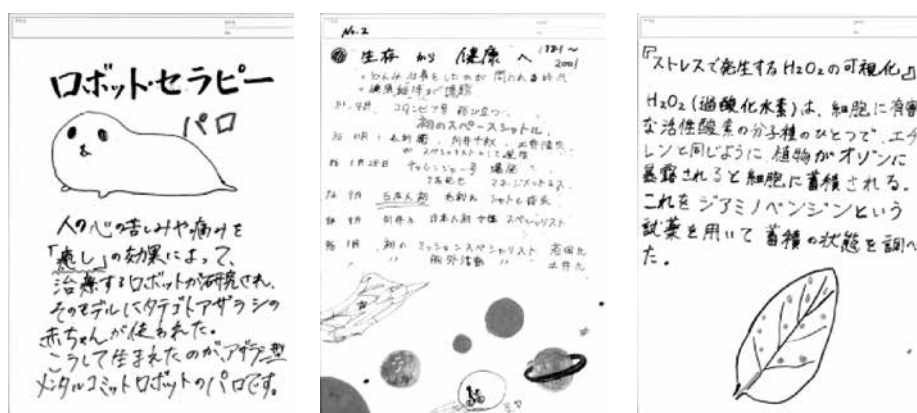 ロボット・セラピー
パロ
人の心の苦しみや痛みを
「癒し」の効果によって、
治療するロボットが研究され、
そのモデルにタテゴトアザラシの
赤ちゃんが使われた。
こうして生まれたのが、アザラシ型
メンタルコミットロボットのパロです。
No.2
生存 から 健康 へ 1981～
2001
81. 4月 コロンビア号 飛び立つ
初のスペースシャトル
85 毛利衛、向井千秋、土井隆雄
が スペシャリストとして選抜
86 1月28日 チャレンジャー号 爆発
92 9月 日本人初 毛利氏 シャトル搭乗
向井氏 日本人初 女性 スペシャリスト
96 1月 初の ミッションスペシャリスト 若田氏
船外活動 〃 土井氏
『ストレスで発生するH2O2の可視化』
H2O2(過酸化水素)は、細胞に有害
な活性酸素の分子種のひとつで、エチ
レンと同じように、植物がオゾンに
暴露されると細胞に蓄積される。
これをジアミノベンジンという
試薬を用いて蓄積の状態を調べ
た。